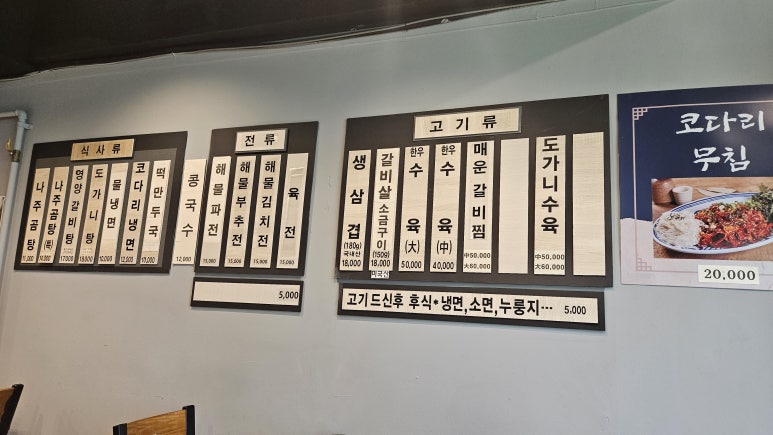 식사류
나주곰탕
나주곰탕(특)
영양갈비탕
도가니탕
물냉면
10,000
코다리냉면
12,000
떡만두국
10,000
콩국수
12,000
전류
해물파전
15,000
해물부추전
15,000
해물김치전
15,000
육전
15,000
5,000
고기류
생삼겹
(180g)
국내산
18,000
갈비살소금구이
(150g)
18,000
미국산
한우
수육
(大)
50,000
한우
수육
(中)
40,000
매운갈비찜
中50,000
大60,000
도가니수육
中50,000
大60,000
고기 드신후 후식*냉면,소면,누룽지… 5,000
코다리
무침
20,000